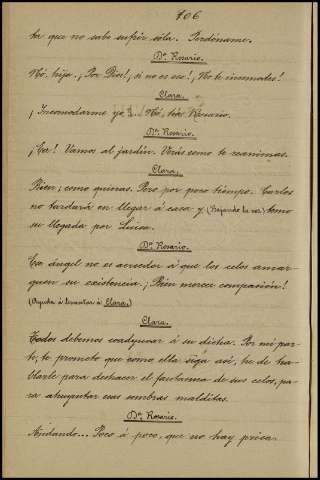 106
ta que no sabe sufrir sola. Perdóname.
Dª Rosario.
No, hija. ¡Por Dios!, si no es eso!, ¡No te incomodes!
Clara.
¡Incomodarme yo!... ¡No, tía Rosario.
Dª Rosario.
¡Ea! Vamos al jardín. Verás como te reanimas.
Clara.
Bien; como quieras. Pero por poco tiempo. Carlos
no tardará en llegar á casa y (Bajando la voz) temo
su llegada por Luisa.
Dª Rosario.
Ese ángel no es acreedor á que los celos amar-
guen su existencia; ¡Bien merece compasión!
(Ayuda á levantar á Clara.)
Clara.
Todos debemos coadyuvar á su dicha. Por mi par-
te, te prometo que como ella siga así, he de ha-
blarle para deshacer el fantasma de sus celos, pa-
ra ahuyentar esas sombras malditas.
Dª Rosario.
Andando... Poco á poco, que no hay prisa.